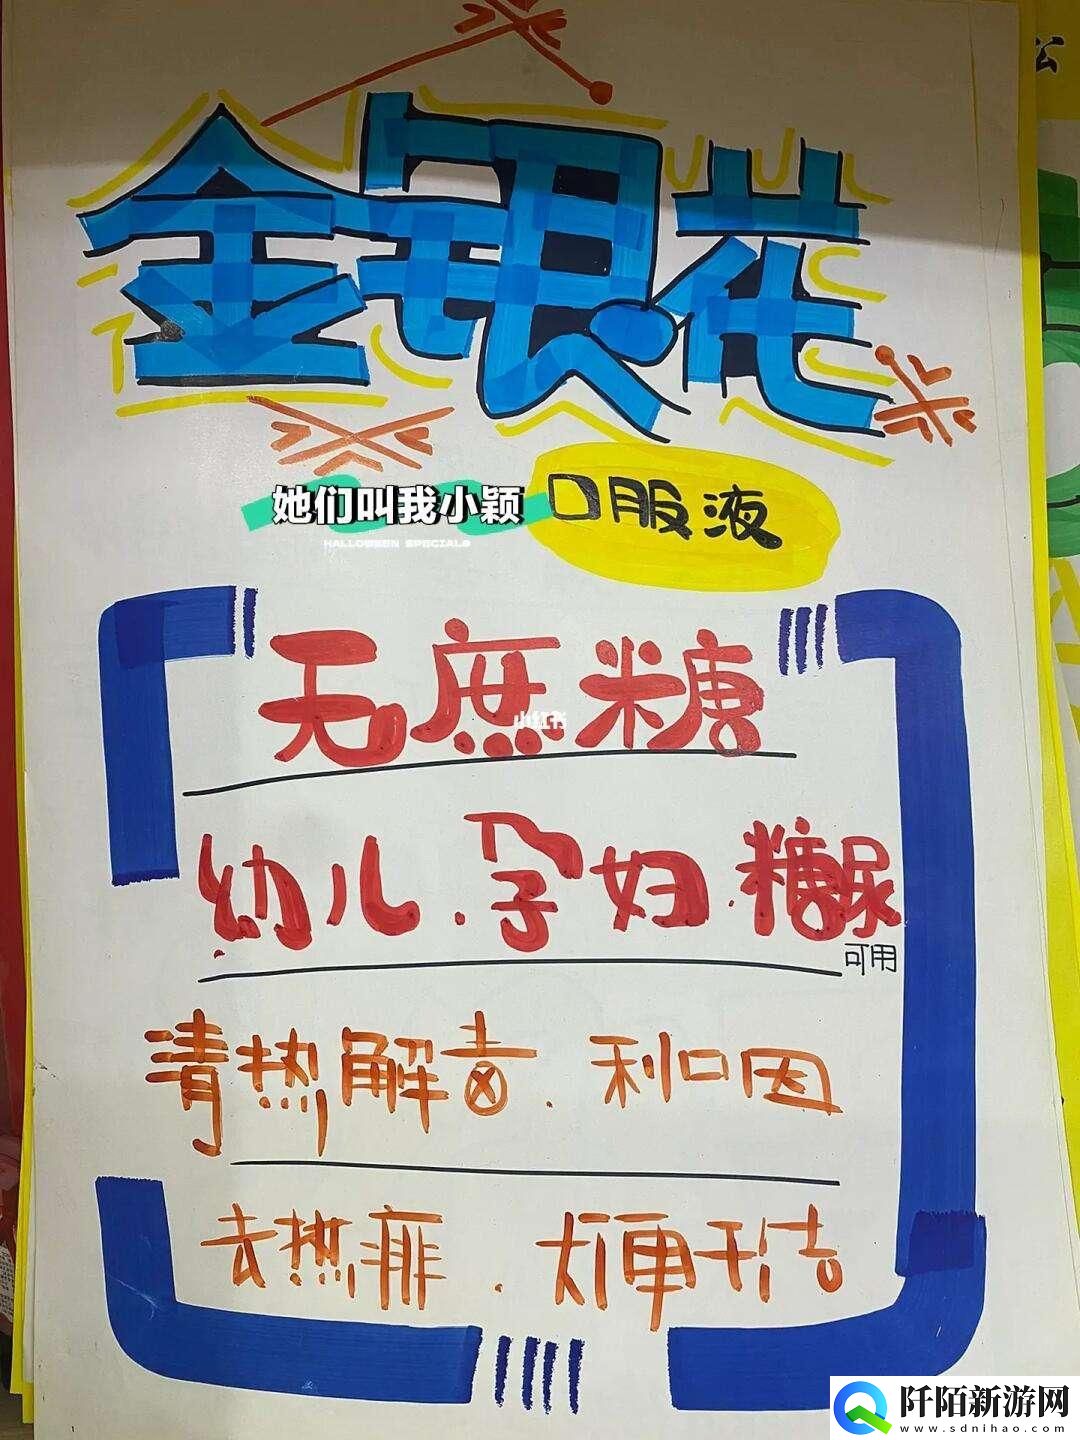 公
金银花
她们叫我小颖
口服液
HALLOWEEN SPECIALS
无蔗糖
小红书
幼儿.孕妇.糖尿
可用
清热解毒.利口因
去热痱.大便干结
阡陌新游网
www.sdnihao.com